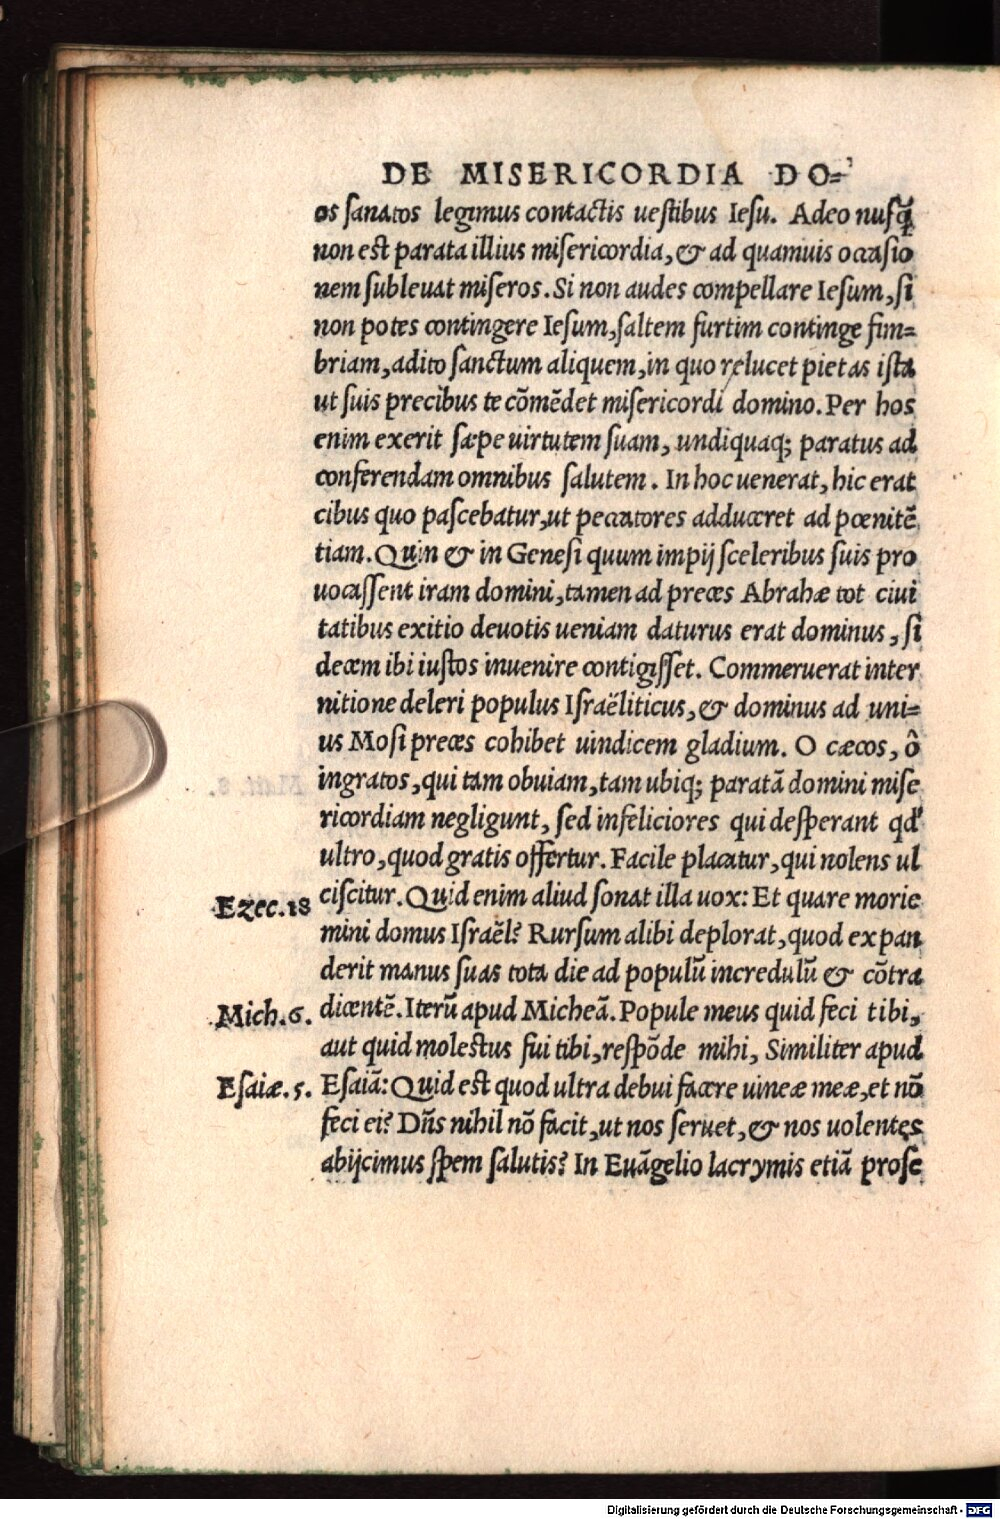 DE MISERICORDIA DO=
os sanatos legimus contactis uestibus Iesu. Adeo nusq̃
non est parata illius misericordia, & ad quamuis occasio
nem subleuat miseros. Si non audes compellare Iesum, si
non potes contingere Iesum, saltem furtim continge fim=
briam, adito sanctum aliquem, in quo relucet pietas ista
ut suis precibus te cõmẽdet misericordi domino. Per hos
enim exerit sæpe uirtutem suam, undiquaq; paratus ad
conferendam omnibus salutem. In hoc uenerat, hic erat
cibus quo pascebatur, ut peccatores adduceret ad pœnitẽ
tiam. Quin & in Genesi quum impij sceleribus suis pro
uocassent iram domini, tamen ad preces Abrahæ tot ciui
tatibus exitio deuotis ueniam daturus erat dominus, si
decem ibi iustos inuenire contigisset. Commeruerat inter
nitione deleri populus Israëliticus, & dominus ad uni=
us Mosi preces cohibet uindicem gladium. O cæcos, ô
ingratos, qui tam obuiam, tam ubiq; paratã domini mise
ricordiam negligunt, sed infeliciores qui desperant qd'
ultro, quod gratis offertur. Facile placatur, qui nolens ul
Ezec.18 ciscitur. Quid enim aliud sonat illa uox: Et quare morie
mini domus Israël? Rursum alibi deplorat, quod expan
derit manus suas tota die ad populũ incredulũ & cõtra
Mich.6. dicentẽ. Iterũ apud Micheã. Popule meus quid feci tibi,
aut quid molestus fui tibi, respõde mihi, Similiter apud
Esaiæ.5. Esaiã: Quid est quod ultra debui facere uineæ meæ, et nõ
feci ei? Dñs nihil nõ facit, ut nos seruet, & nos uolentes
abijcimus spem salutis? In Euãgelio lacrymis etiã prose
Digitalisierung gefördert durch die Deutsche Forschungsgemeinschaft - DFG